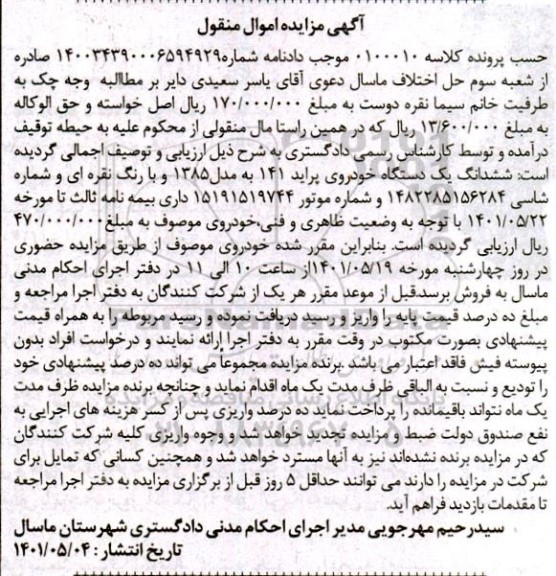 آگهی مزایده اموال منقول
حسب پرونده کلاسه ۰۱۰۰۰۱۰ موجب دادنامه شماره۱۴۰۰۳۴۳۹۰۰۰۶۵۹۴۹۲۹ صادره
از شعبه سوم حل اختلاف ماسال دعوی آقای یاسر سعیدی دایر بر مطالبه وجه چک به
طرفیت خانم سیما نقره دوست به مبلغ ۱۷۰/۰۰۰/۰۰۰ ریال اصل خواسته و حق الوکاله
به مبلغ ۱۳/۶۰۰/۰۰۰ ریال که در همین راستا مال منقولی از محکوم علیه به حیطه توقیف
درآمده و توسط کارشناس رسمی دادگستری به شرح ذیل ارزیابی و توصیف اجمالی گردیده
است: ششدانگ یک دستگاه خودروی پراید ۱۴۱ به مدل۱۳۸۵ و با رنگ نقره ای و شماره
شاسی ۱۴۸۲۲۸۵۱۵۶۲۸۴ و شماره موتور ۱۵۱۹۱۵۱۹۷۴۴ داری بیمه نامه ثالث تا مورخه
۱۴۰۱/۰۵/۲۲ با توجه به وضعیت ظاهری و فنی،خودروی موصوف به مبلغ ۴۷۰/۰۰۰/۰۰۰
ریال ارزیابی گردیده است. بنابراین مقرر شده خودروی موصوف از طریق مزایده حضوری
در روز چهارشنبه مورخه ۱۴۰۱/۰۵/۱۹از ساعت ۱۰ الی ۱۱ در دفتر اجرای احکام مدنی
ماسال به فروش برسد.قبل از موعد مقرر هر یک از شرکت کنندگان به دفتر اجرا مراجعه و
مبلغ ده درصد قیمت پایه را واریز و رسید دریافت نموده و رسید مربوطه را به همراه قیمت
پیشنهادی بصورت مکتوب در وقت مقرر به دفتر اجرا ارائه نمایند و درخواست افراد بدون
پیوسته فیش فاقد اعتبار می باشد. برنده مزایده مجموعا می تواند ده درصد پیشنهادی خود
را تودیع و نسبت به الباقی ظرف مدت یک ماه اقدام نماید و چنانچه برنده مزایده ظرف مدت
یک ماه نتواند باقیمانده را پرداخت نماید ده درصد واریزی پس از کسر هزینه های اجرایی به
نفع صندوق دولت ضبط و مزایده تجدید خواهد شد و وجوه واریزی کلیه شرکت کنندگان
که در مزایده برنده نشده‌اند نیز به آنها مسترد خواهد شد و همچنین کسانی که تمایل برای
شرکت در مزایده را دارند می توانند حداقل ۵ روز قبل از برگزاری مزایده به دفتر اجرا مراجعه
تا مقدمات بازدید فراهم آید.
سیدرحیم مهرجویی مدیر اجرای احکام مدنی دادگستری شهرستان ماسال
تاریخ انتشار : ۱۴۰۱/۰۵/۰۴